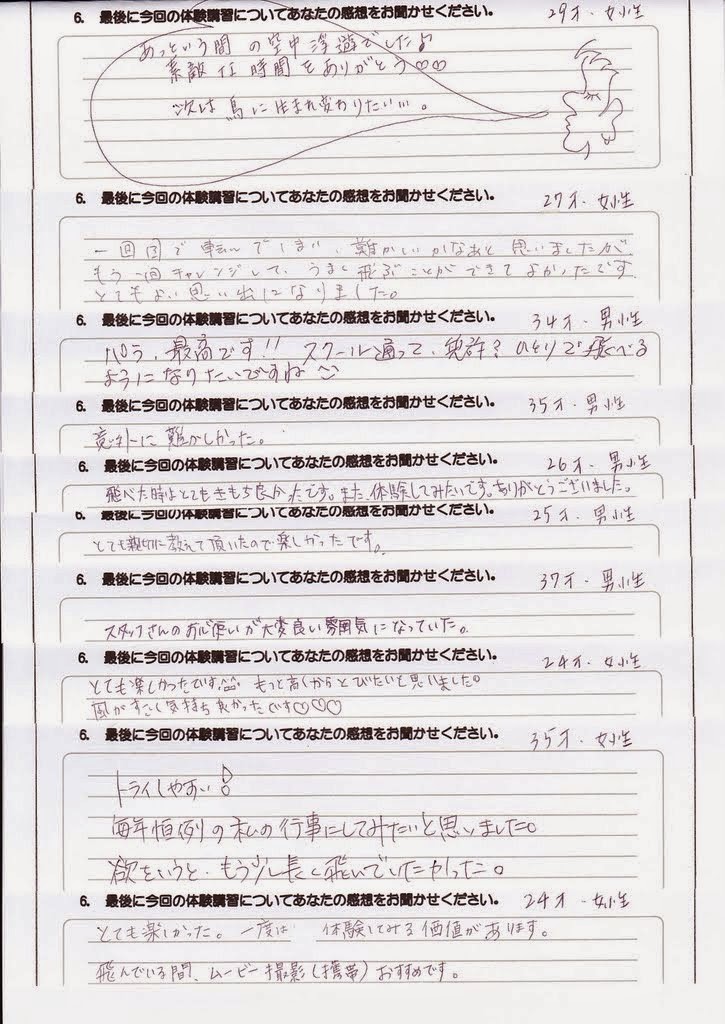 6. 最後に今回の体験講習についてあなたの感想をお聞かせください。 29才・女性
あっという間の空中浮遊でした♪
素敵な時間をありがとう♡♡
次は鳥に生まれ変わりたい…。
6. 最後に今回の体験講習についてあなたの感想をお聞かせください。 27才・女性
一回目で転んでしまい、難かしいかなあと思いましたが
もう一回チャレンジして、うまく飛ぶことができてよかったです
とてもよい思い出になりました。
6. 最後に今回の体験講習についてあなたの感想をお聞かせください。 34才・男性
パラ、最高です!! スクール通って、免許？ひとりで飛べる
ようになりたいですね
6. 最後に今回の体験講習についてあなたの感想をお聞かせください。 35才・男性
意外に難かしかった。
6. 最後に今回の体験講習についてあなたの感想をお聞かせください。 26才・男性
飛べた時はとてもきもち良かったです。また、体験してみたいです。ありがとうございました。
6. 最後に今回の体験講習についてあなたの感想をお聞かせください。 25才・男性
とても親切に教えて頂いたので楽しかったです。
6. 最後に今回の体験講習についてあなたの感想をお聞かせください。 37才・男性
スタッフさんのお心使いが大変良い雰囲気になっていた。
6. 最後に今回の体験講習についてあなたの感想をお聞かせください。 24才・女性
とても楽しかったです。もっと高くからとびたいと思いました。
風がすごく気持ち良かったです♡♡♡
6. 最後に今回の体験講習についてあなたの感想をお聞かせください。 35才・女性
トライしやすい♪
毎年恒例の私の行事にしてみたいと思いました。
欲をいうと、もう少し長く飛んでいたかった。
6. 最後に今回の体験講習についてあなたの感想をお聞かせください。 24才・女性
とても楽しかった。一度は 体験してみる価値があります。
飛んでいる間、ムービー撮影(携帯)おすすめです。